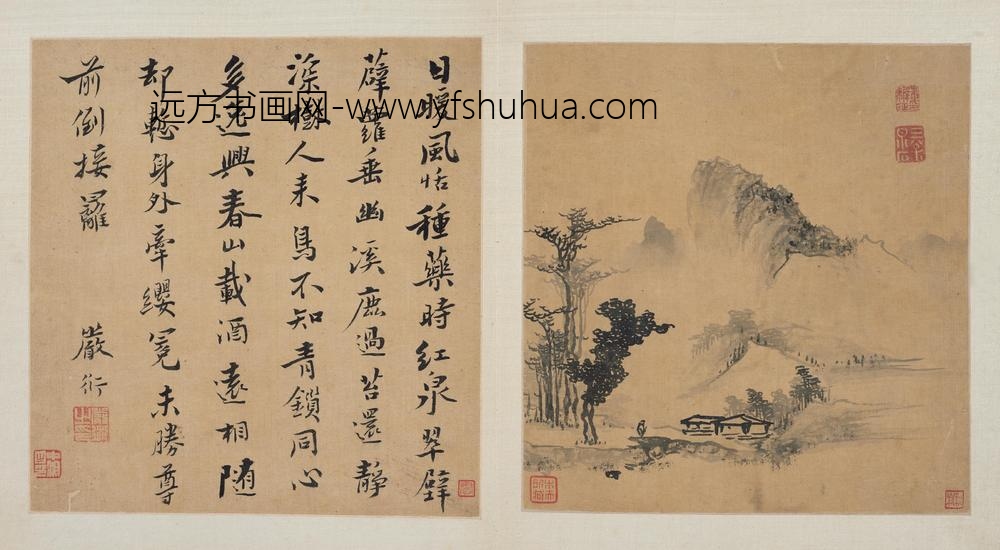 日暖風恬種藥時紅泉翠壁
薜蘿垂幽溪鹿過苔還靜
深樹人来鳥不知青鎖同心
多逸興春山載酒遠相随
却慙身外牽纓冕未勝尊
前倒接䍦
嚴衍
远方书画网-www.yfshuhua.com